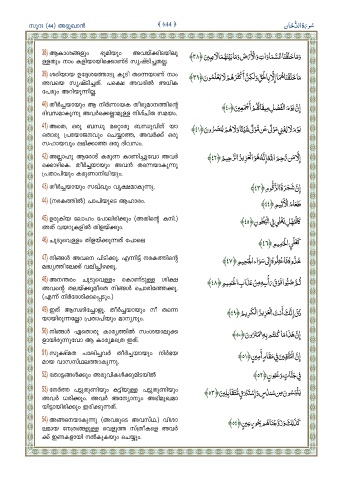 സൂറ (44) അദ്ദുഖാൻ
﴾ 644 ﴿
سُورَةُ الدُّخَان
38) ആകാശങ്ങളും ഭൂമിയും അവയ്ക്കിടയിലു
ള്ളതും നാം കളിയായിക്കൊണ്ട് സൃഷ്ടിച്ചതല്ല.
وَمَا خَلَقْنَا السَّمَاوَاتِ وَالْأَرْضَ وَمَا بَيْنَهُمَا لَاعِبِينَ ﴿٣٨﴾
39) ശരിയായ ഉദ്ദേശത്തോടു കൂടി തന്നെയാണ് നാം
അവയെ സൃഷ്ടിച്ചത്. പക്ഷെ അവരിൽ അധിക
പേരും അറിയുന്നില്ല.
مَا خَلَقْنَاهُمَا إِلَّا بِالْحَقِّ وَلَكِنَّ أَكْثَرَهُمْ لَا يَعْلَمُونَ ﴿٣٩﴾
40) തീർച്ചയായും ആ നിർണായക തീരുമാനത്തിന്റെ
ദിവസമാകുന്നു അവർക്കെല്ലാമുള്ള നിശ്ചിത സമയം.
إِنَّ يَوْمَ الْفَصْلِ مِيقَاتُهُمْ أَجْمَعِينَ ﴿٤٠﴾
41) അതെ, ഒരു ബന്ധു മറ്റൊരു ബന്ധുവിന് യാ
തൊരു പ്രയോജനവും ചെയ്യാത്ത, അവർക്ക് ഒരു
സഹായവും ലഭിക്കാത്ത ഒരു ദിവസം.
يَوْمَ لَا يُغْنِي مَوْلًى عَنْ مَوْلًى شَيْئًا وَلَا هُمْ يُنْصَرُونَ ﴿٤١﴾
42) അല്ലാഹു ആരോട് കരുണ കാണിച്ചുവോ അവർ
ക്കൊഴികെ. തീർച്ചയായും അവൻ തന്നെയാകുന്നു
പ്രതാപിയും കരുണാനിധിയും.
إِلَّا مَنْ رَحِمَ اللَّهُ إِنَّهُ هُوَ الْعَزِيزُ الرَّحِيمُ ﴿٤٢﴾
43) തീർച്ചയായും സഖ്ഖൂം വൃക്ഷമാകുന്നു.
إِنَّ شَجَرَةَ الزَّقُّومِ ﴿٤٣﴾
44) (നരകത്തിൽ) പാപിയുടെ ആഹാരം.
طَعَامُ الْأَثِيمِ ﴿٤٤﴾
45) ഉരുകിയ ലോഹം പോലിരിക്കും (അതിന്റെ കനി.)
അത് വയറുകളിൽ തിളയ്ക്കും.
كَالْمُهْلِ يَغْلِي فِي الْبُطُونِ ﴿٤٥﴾
46) ചുടുവെള്ളം തിളയ്ക്കുന്നത് പോലെ
كَغَلْيِ الْحَمِيمِ ﴿٤٦﴾
47) നിങ്ങൾ അവനെ പിടിക്കൂ. എന്നിട്ട് നരകത്തിന്റെ
മദ്ധ്യത്തിലേക്ക് വലിച്ചിഴക്കൂ.
خُذُوهُ فَاعْتِلُوهُ إِلَى سَوَاءِ الْجَحِيمِ ﴿٤٧﴾
48) അനന്തരം ചുടുവെള്ളം കൊണ്ടുള്ള ശിക്ഷ
അവന്റെ തലയ്ക്കുമീതെ നിങ്ങൾ ചൊരിഞ്ഞേക്കൂ.
(എന്ന് നിർദേശിക്കപ്പെടും.)
ثُمَّ صُبُّوا فَوْقَ رَأْسِهِ مِنْ عَذَابِ الْحَمِيمِ ﴿٤٨﴾
49) ഇത് ആസ്വദിച്ചോളൂ. തീർച്ചയായും നീ തന്നെ
യായിരുന്നല്ലോ പ്രതാപിയും മാന്യനും.
ذُقْ إِنَّكَ أَنْتَ الْعَزِيزُ الْكَرِيمُ ﴿٤٩﴾
50) നിങ്ങൾ ഏതൊരു കാര്യത്തിൽ സംശയാലുക്ക
ളായിരുന്നുവോ ആ കാര്യമത്രെ ഇത്.
إِنَّ هَذَا مَا كُنْتُمْ بِهِ تَمْتَرُونَ ﴿٥٠﴾
51) സൂക്ഷ്മത പാലിച്ചവർ തീർച്ചയായും നിർഭയ
മായ വാസസ്ഥലത്താകുന്നു.
إِنَّ الْمُتَّقِينَ فِي مَقَامٍ أَمِينٍ ﴿٥١﴾
52) തോട്ടങ്ങൾക്കും അരുവികൾക്കുമിടയിൽ
فِي جَنَّاتٍ وَعُيُونٍ ﴿٥٢﴾
53) നേർത്ത പട്ടുതുണിയും കട്ടിയുള്ള പട്ടുതുണിയും
അവർ ധരിക്കും. അവർ അന്യോന്യം അഭിമുഖമാ
യിട്ടായിരിക്കും ഇരിക്കുന്നത്.
يَلْبَسُونَ مِنْ سُنْدُسٍ وَإِسْتَبْرَقٍ مُتَقَابِلِينَ ﴿٥٣﴾
54) അങ്ങനെയാകുന്നു (അവരുടെ അവസ്ഥ.) വിശാ
ലമായ നേത്രങ്ങളുള്ള വെളുത്ത സ്ത്രീകളെ അവർ
ക്ക് ഇണകളായി നൽകുകയും ചെയ്യും.
كَذَلِكَ وَزَوَّجْنَاهُمْ بِحُورٍ عِينٍ ﴿٥٤﴾